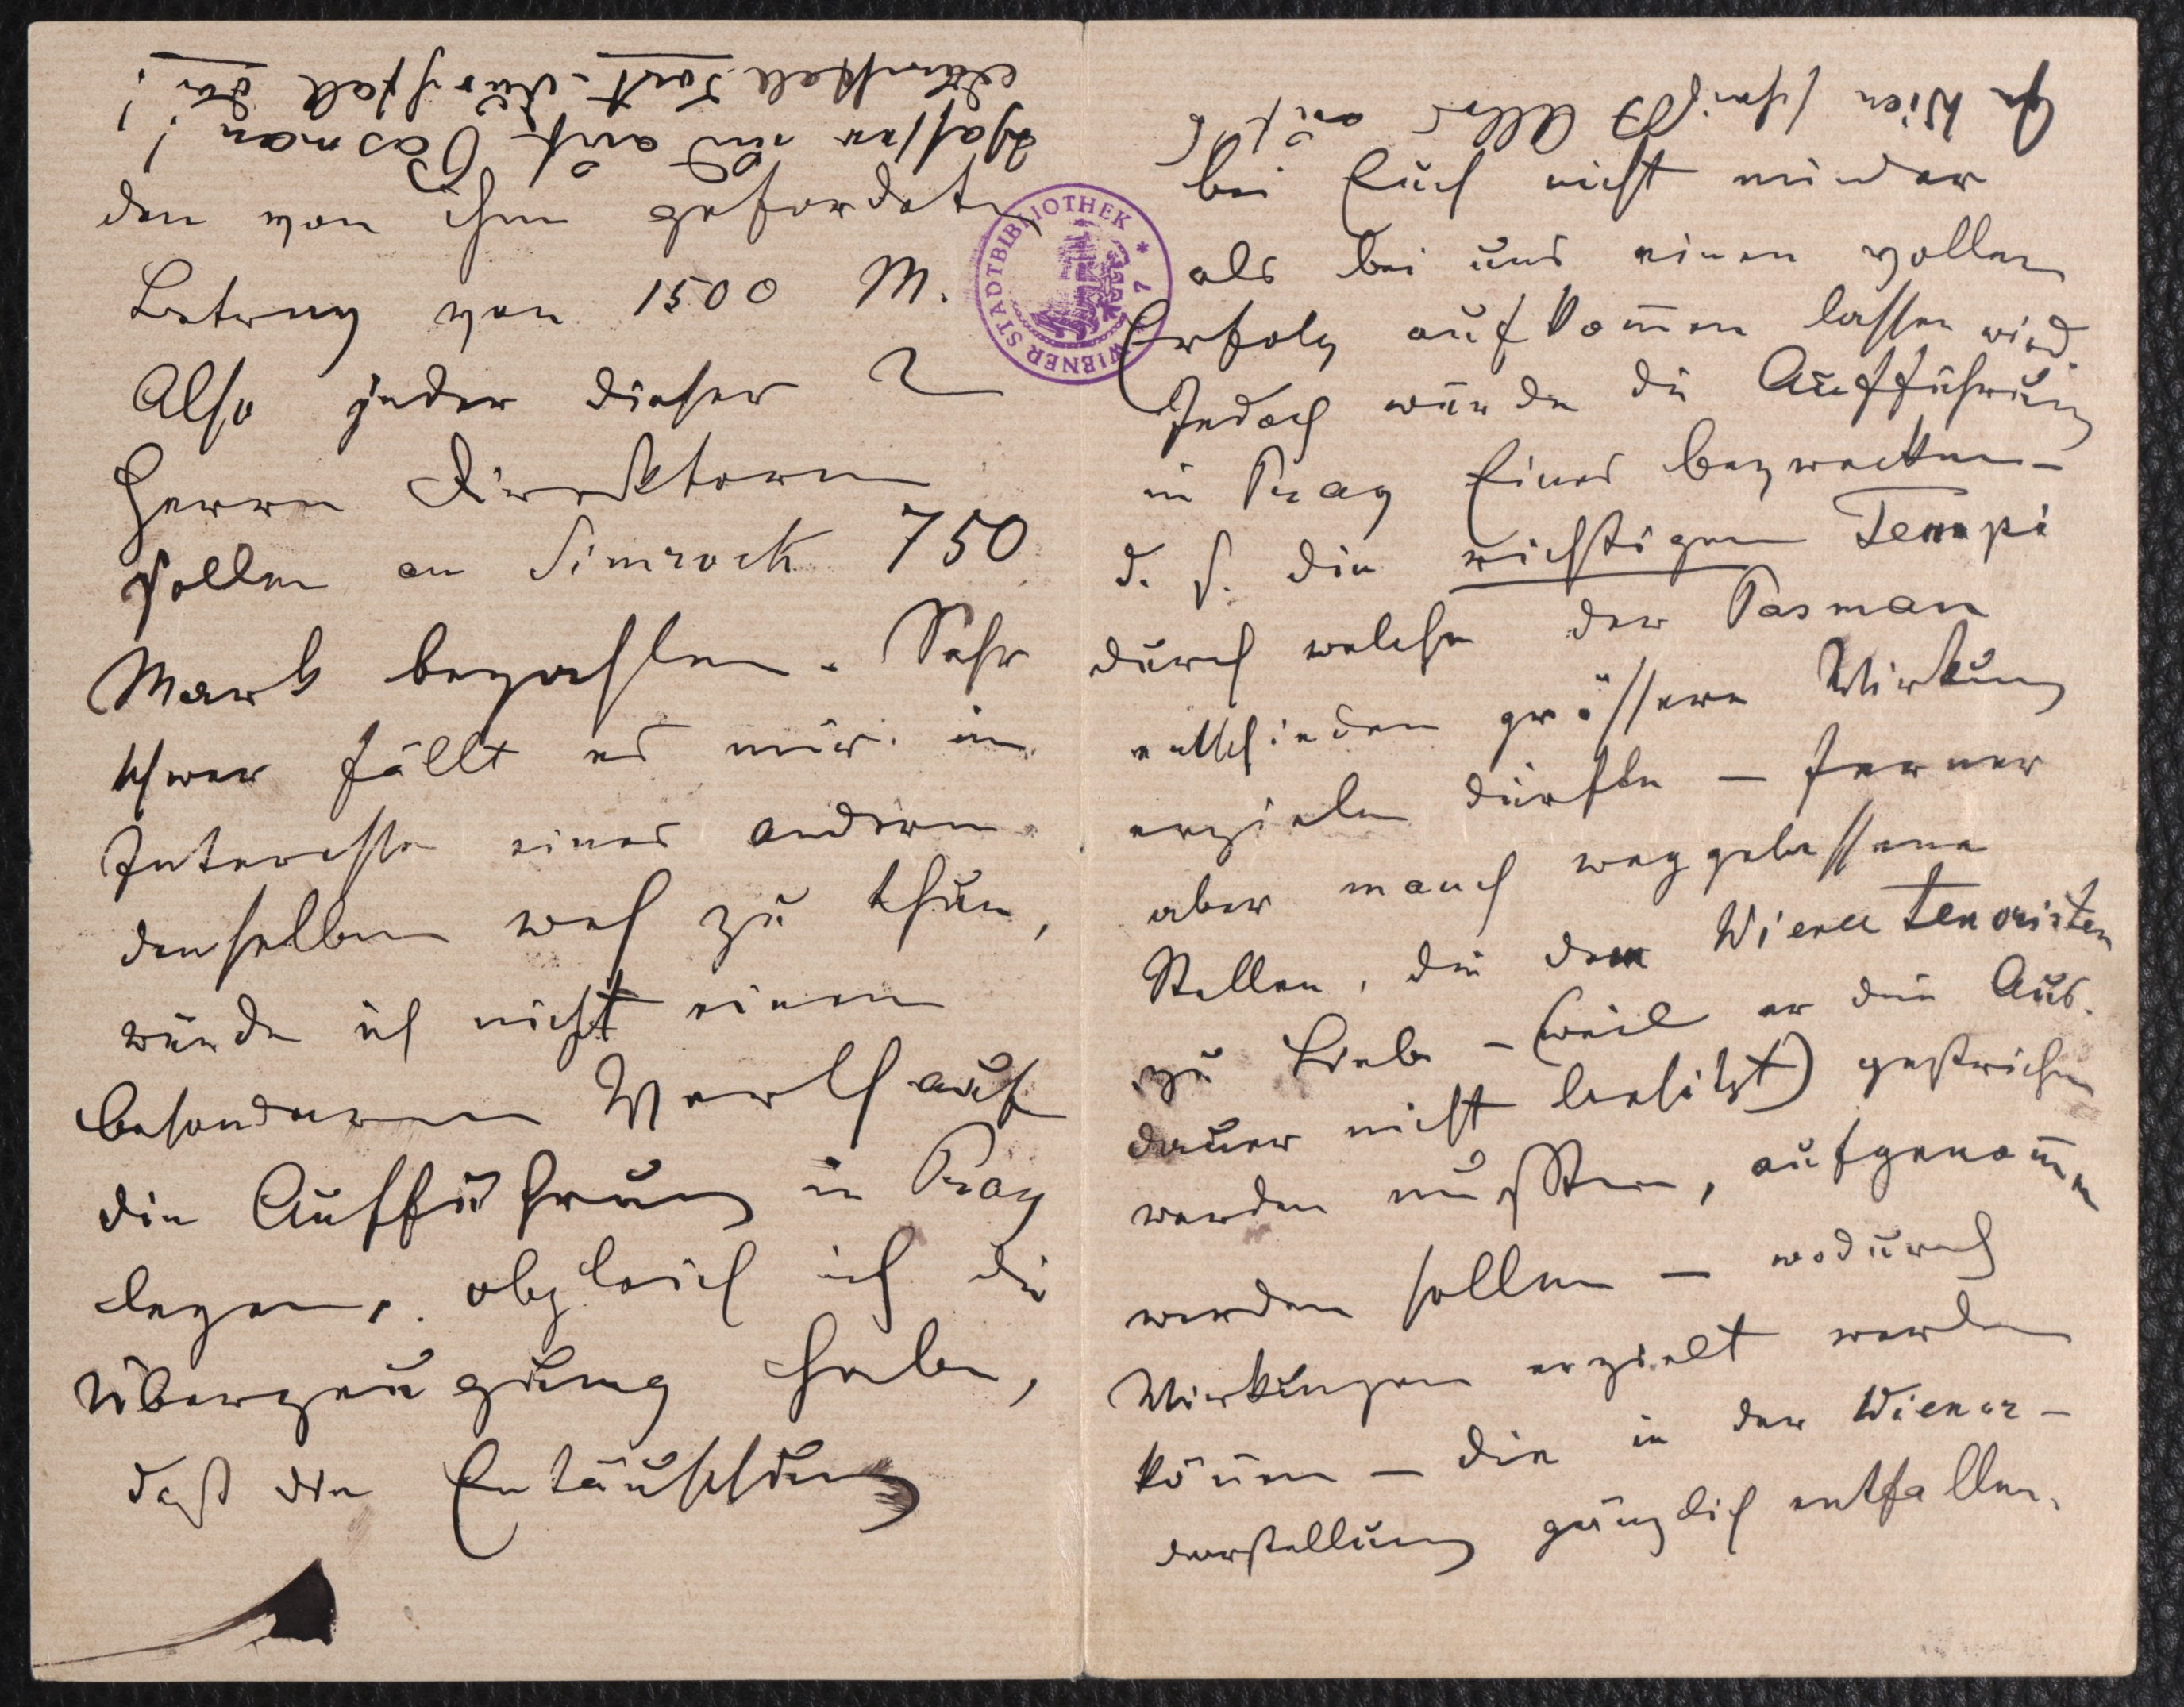 den von ihm gefordeten
Betrag von 1500 M.
Also jeder dieser 2
Herren Direktoren
sollen an Simrock 750
Mark bezahlen. Sehr
schwer fällt es mir im
Interesse eines andern
denselben weh zu thun,
würde ich nicht einen
besonderen Werth auf
die Aufführung in Prag
legen, obgleich ich die
Überzeugung habe,
daß die Entäuschung
bei Euch nicht minder
als bei uns einen vollen
Erfolg aufkom̄en lassen wird.
Jedoch würde die Aufführung
in Prag Eines bezwecken –
d. h. die richtigen Tempi
durch welche der Pasman
entschieden grössere Wirkung
erzielen dürfte – ferner
aber manch weggelassene
Stellen, die dem Wiener Tenoristen
zu Liebe – (weil er die Aus-
dauer nicht besitzt) gestrichen
werden mußten, aufgenom̄en
werden sollen – wodurch
Wirkungen erzielt werden
kön̄en – die in der Wiener –
darstellung gänzlich entfallen.
In Wien schreit Alles
und auf Pasman!
Marstall dort. Marstall da!
WIENER STADTBIBLIOTHEK * 7 *